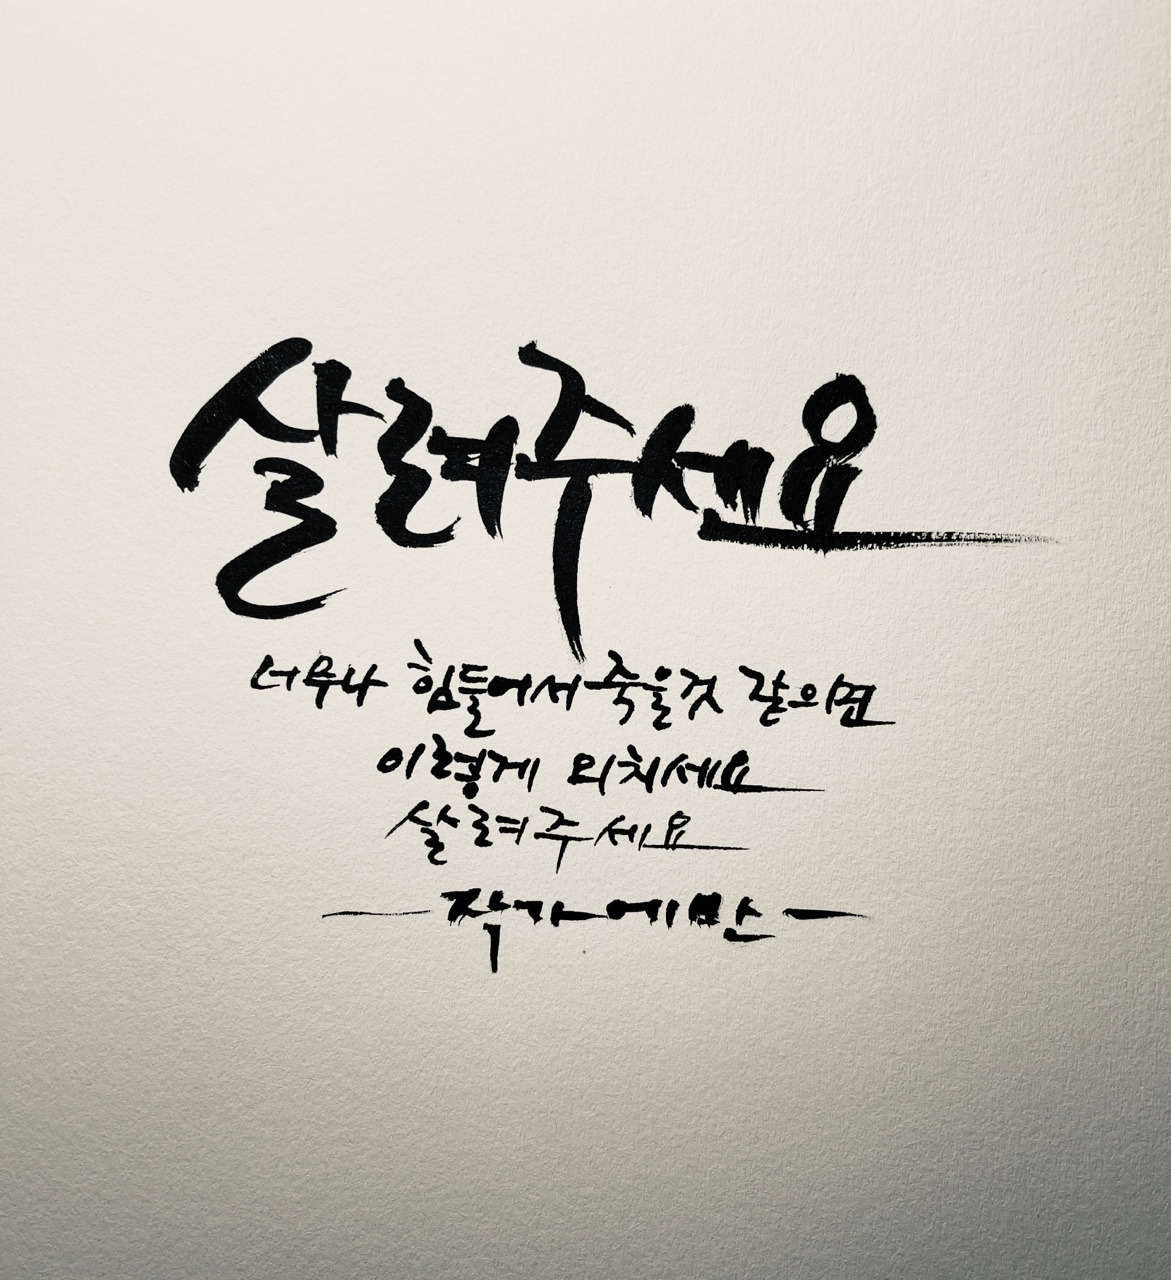 살려주세요
너무나 힘들어서 죽을것 같으면
이렇게 외치세요
살려주세요
작가에반